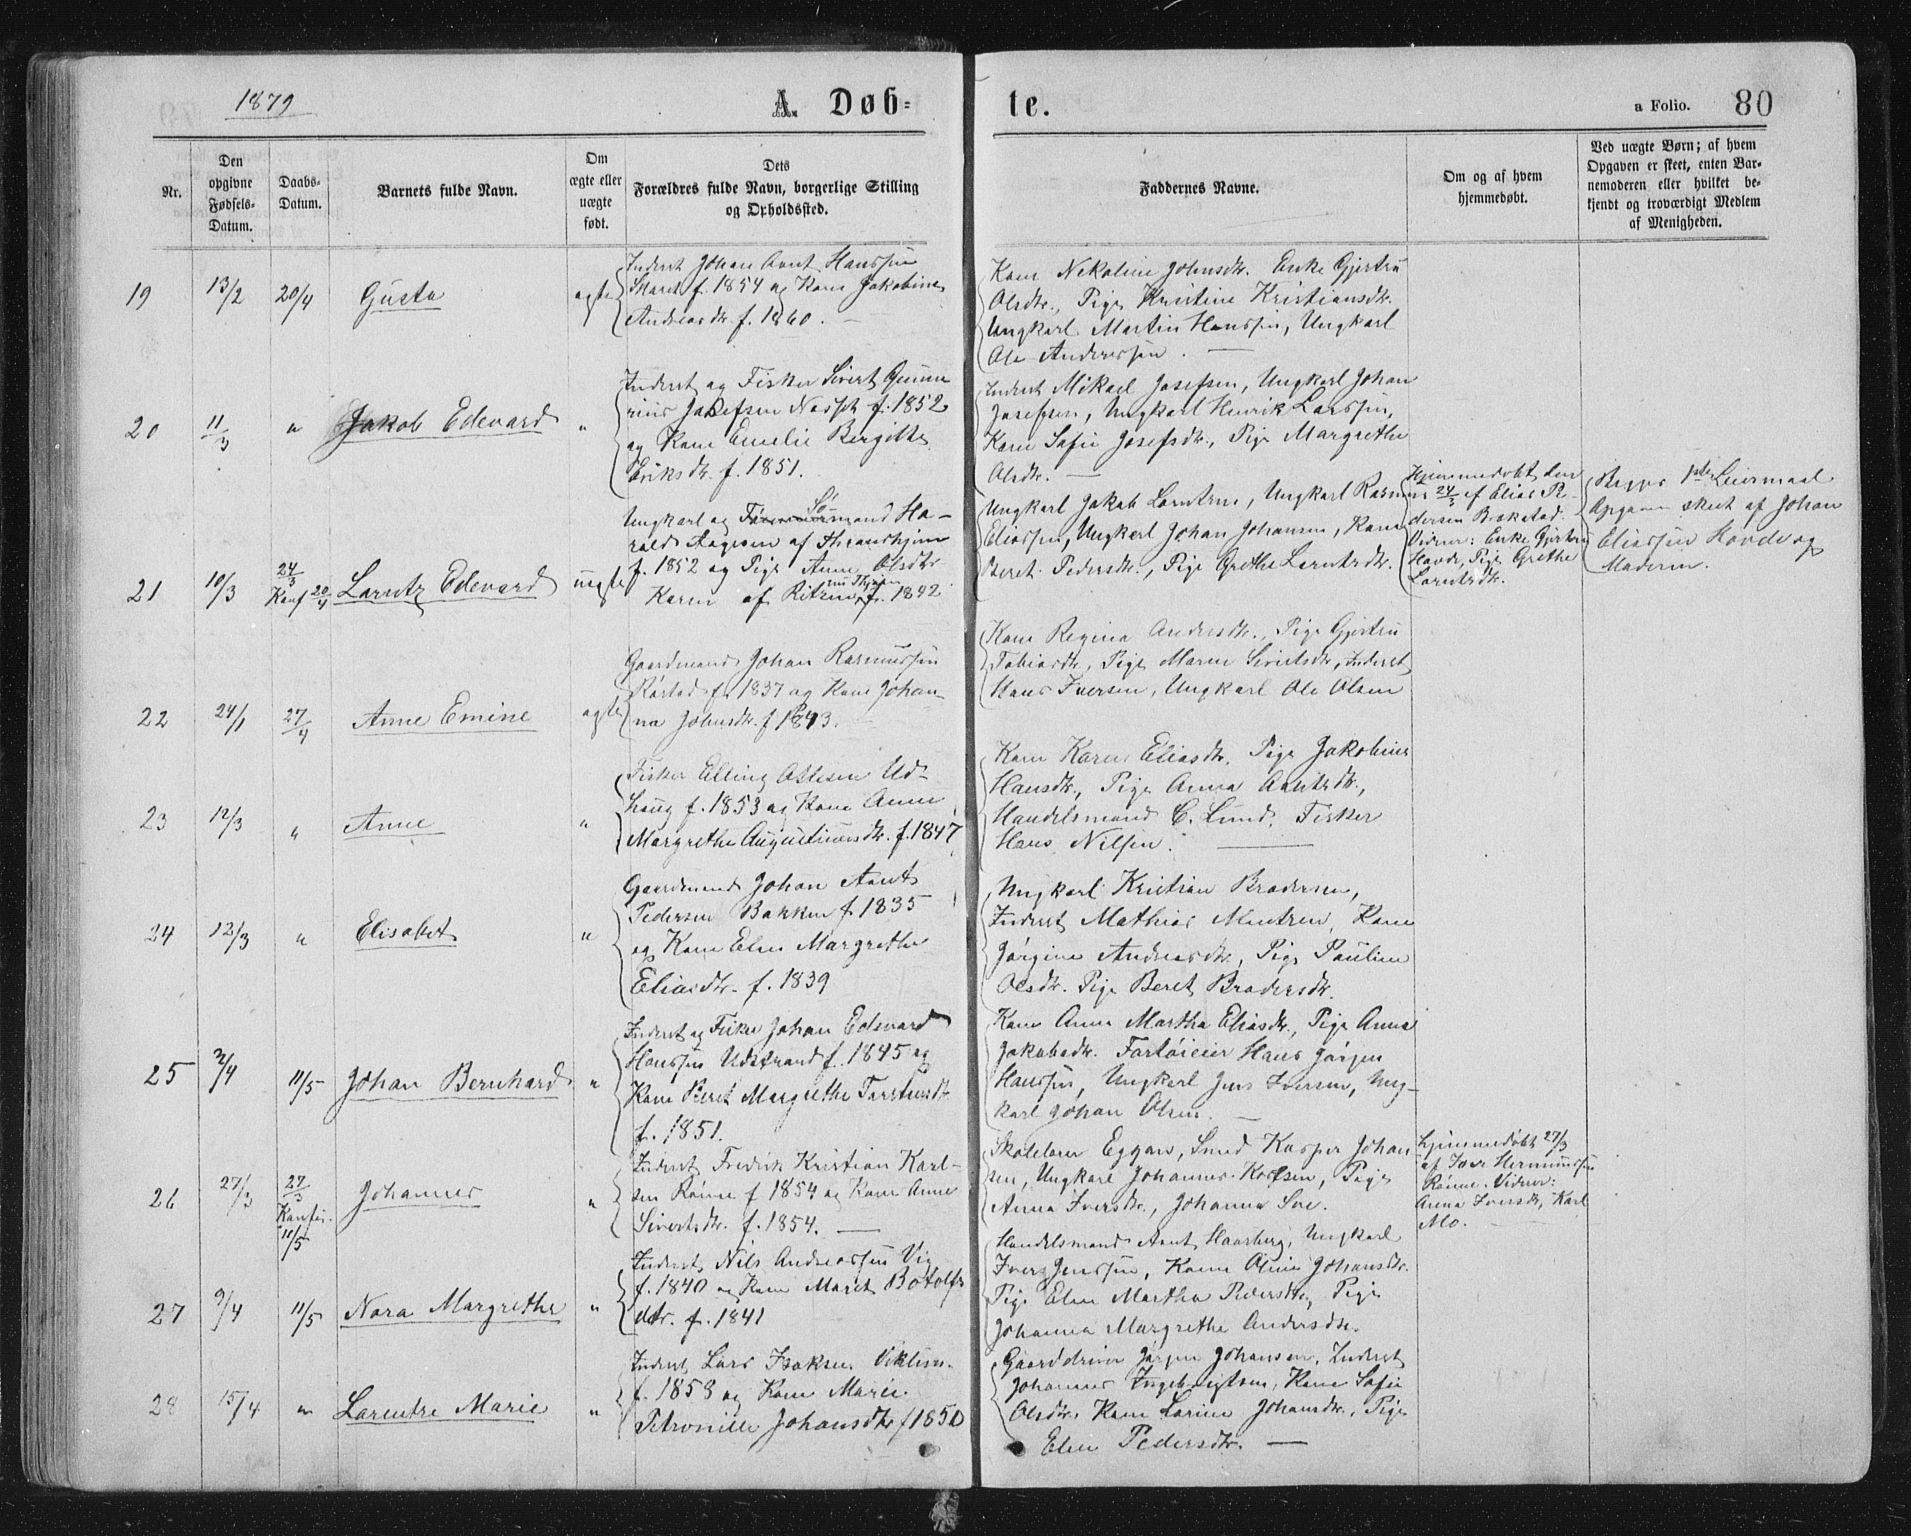 1879
A. Døb-
te.
a Folio. 80
Nr.
Den opgivne Fødsels-Datum.
Daabs-Datum.
Barnets fulde Navn.
Om ægte eller uægte født.
Dets Forældres fulde Navn, borgerlige Stilling og Opholdssted.
Faddernes Navne.
Om og af hvem hjemmedøbt.
Ved uægte Børn; af hvem Opgaven er skeet, enten Barnemoderen eller hvilket bekjendt og troværdigt Medlem af Menigheden.
19 13/2 20/4 Gusta ægte
Inderst Johan Arnt Hanssen
f. 1854 og Kone Jakobine
Andreasdtr. f. 1860.
Kone Nekoline Johnsdtr. Enke Gjertru
Olsdtr., Pige Kristine Kristiansdtr.
Ungkarl Martin Hanssen, Ungkarl
Ole Anderssen.
20 11/3 " Jakob Edevard "
Inderst og Fisker Sivert Gunne
rius Josefsen f. 1852
og Kone Emelie Bergitte
Eriksdtr. f. 1851.
Inderst Mikael Josefsen, Ungkarl Johan
Josefsen, Ungkarl Henrik Larssen,
Kone Sofie Josefsdtr., Pige Margrethe
Olsdtr.
21 10/3 24/3 Konf 20/4 Lorntz Edevard uægte
Ungkarl og Sømand Ha-
rald Aagesen af Throndhjem
f. 1852 og Pige Anne Olsdtr
Karen af f. 1842
Ungkarl Jakob Lorntzen, Ungkarl Rasmus
Eliassen, Ungkarl Johan Johansen, Kone
Beret Pedersdtr., Pige Grethe Lorntzdtr.
Hjemmedøbt den
24/3 af Elias Pe-
dersen
Vidner: Enke Gjertru
Hovde, Pige Grethe
Lorntzdtr.
Begges 1ste Leiermaal
Opgaven skeet af Johan
Eliassen Hovde og
Moderen.
22 24/1 27/4 Anne Emine ægte
Gaardmand Johan Rasmussen
f. 1837 og Kone Johan-
na Johnsdtr. f 1843.
Kone Regina Andersdtr., Pige Gjertru
Tobiasdtr., Pige Maren Sivertsdtr., Inderst
Hans Iversen, Ungkarl Ole Olsen
23 12/3 " Anne "
Fisker Elling Ottesen Ud-
haug f. 1853 og Kone Anne
Margrethe Augustinusdtr. f. 1847
Kone Karen Eliasdtr. Pige Jakobine
Hansdtr., Pige Anna
Handelsmand C. Lund. Fisker
Hans Nilsen.
24 12/3 " Elisabet "
Gaardmand Johan Arnt
Pedersen Bakken f. 1835
og Kone Elen Margrethe
Eliasdtr. f. 1839
Ungkarl Kristian Brodersen,
Inderst Mathias Mentzen, Kone
Jørgine Andreasdtr., Pige Pauline
Olsdtr. Pige Beret Brodersdtr.
25 2/4 11/5 Johan Bernhard "
Inderst og Fisker Johan Edevard
Hanssen Udstrand f. 1845 og
Kone Beret Margrethe Torstensdtr.
f. 1851.
Kone Anne Martha Eliasdtr., Pige Anna
Jakobsdtr. Fartøieier Hans Jørgen
Hanssen, Ungkarl Jens Iversen, Ung-
karl Johan Olsen.
26 27/3 27/3 Konfir. 11/5 Johannes "
Inderst Fredrik Kristian Karl-
sen Rønne f 1854 og Kone Anne
Sivertsdtr. f. 1854.
Skolelærer Eggan, Smed Kasper Johan
sen, Ungkarl Johannes Rolfsen, Pige
Anna Iversdtr., Johanna
Hjemmedøbt 27/3
af Iver Hermanssen
Rønne. Vidner:
Anna Iversdtr, Karl
Mo.
27 9/4 11/5 Nora Margrethe "
Inderst Nils Andreassen Vig
f. 1840 og Kone Marit Botolfs
dtr. f. 1841
Handelsmand Arnt Haarberg, Ungkarl
Iver Jenssen, Kone Oline Johansdtr.
Pige Elen Martha Pedersdtr., Pige
Johanna Margrethe Andersdtr.
28 15/4 " Larentze Marie "
Inderst Lars Isaksen
f. 1858 og Kone Marie
Petronille Johansdtr f 1850
Gaarddreng Jørgen Johansen, Inderst
Johannes Ingebrigtsen, Kone Sofie
Olsdtr. Kone Lorine Johansdtr., Pige
Elen Pedersdtr.